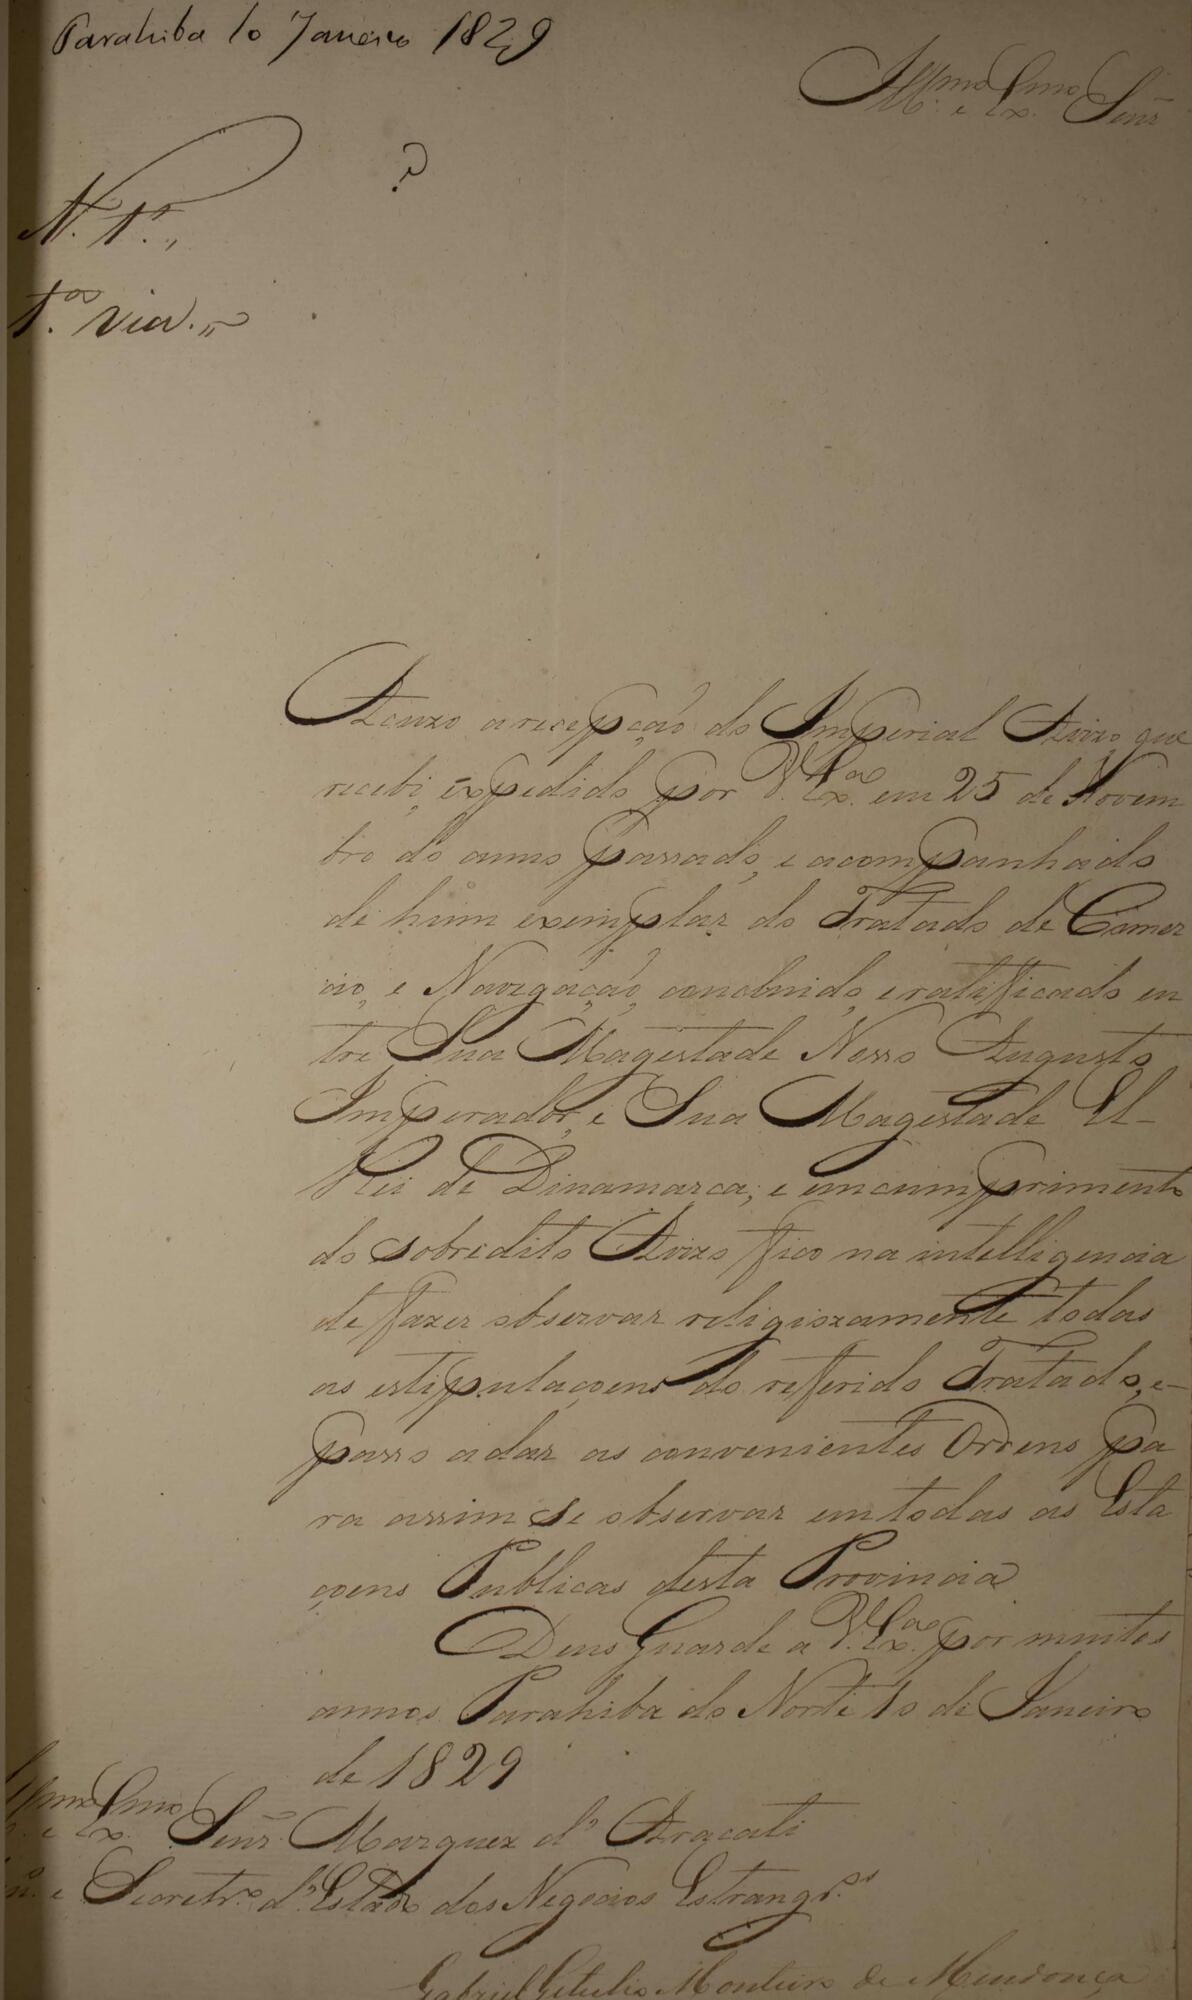 Parahiba 10 Janeiro 1829
Ill.mo e Ex.mo Senr
?
N. 1.º
1.ª via
Acuzo a recepção do Imperial Avizo, que
recebi, expedido por V. Ex.ª em 25 de Novem
bro do anno passado, e acompanhado
de hum exemplar do Tratado de Comer
cio, e Navegação, concluido, e ratificado en
tre Sua Magestade Nosso Augusto
Imperador, e Sua Magestade El-
Rei de Dinamarca; e em cumprimento
do sobredito Avizo fico na intelligencia
de fazer observar religiozamente todas
as estipulaçoens do referido Tratado, e-
passo a dar as convenientes Ordens pa
ra assim se observar em todas as Esta
çoens Publicas desta Provincia
Deos Guarde a V. Ex.ª por muitos
annos. Parahiba do Norte 10 de Janeiro
de 1829
Ill.mo e Ex.mo Senr Marquez d' Aracati
e Secretr.º d'Estado dos Negocios Estrangr.os
Gabriel Getulio Monteiro de Mendonça